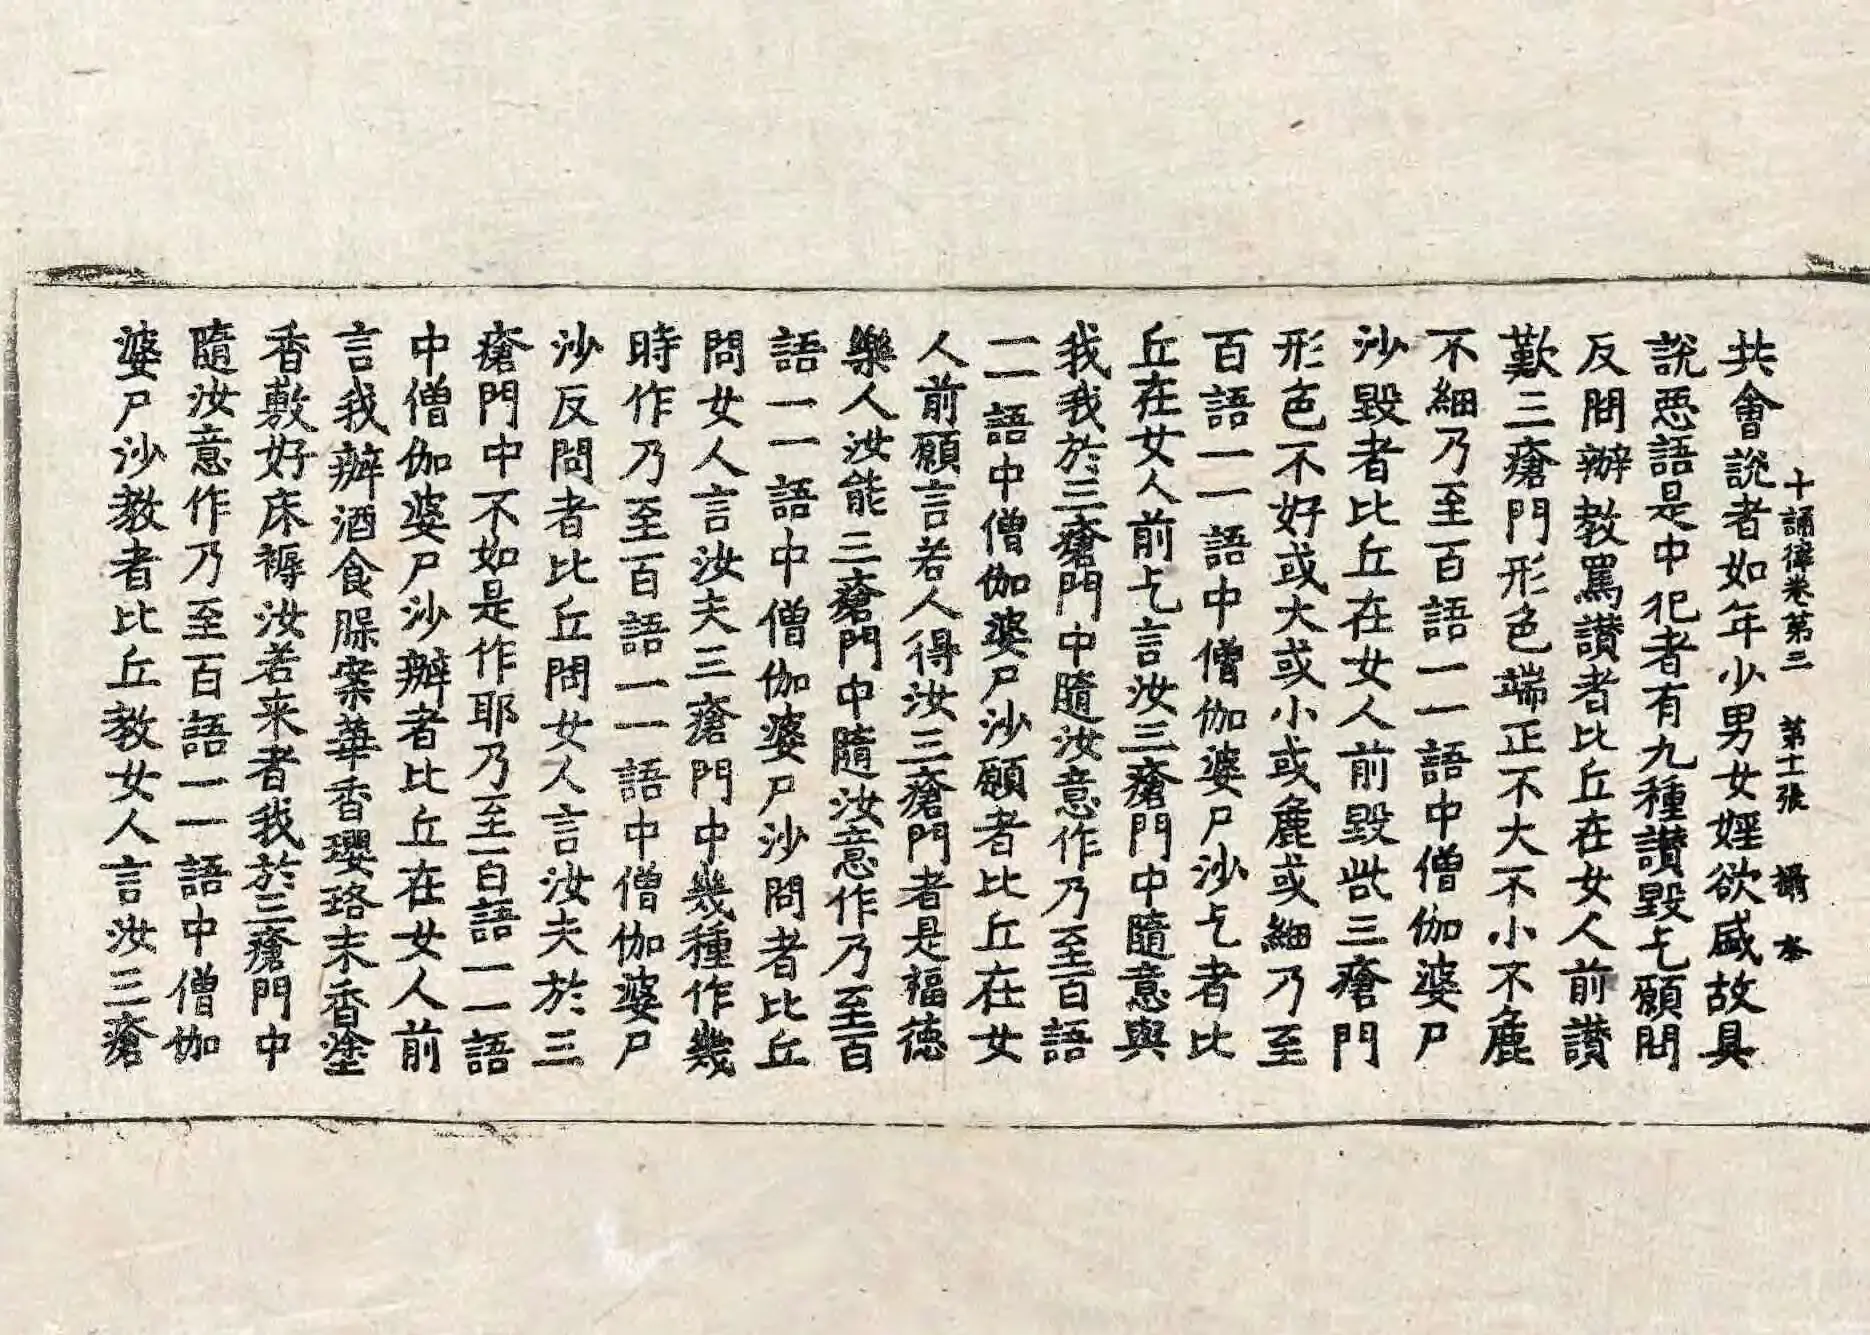 十誦律卷第三 第十一張 攝 夲
共會說者如年少男女婬欲盛故具
說惡語是中犯者有九種讃毀乞願問
反問辦教罵讃者比丘在女人前讃
歎三瘡門形色端正不大不小不麁
不細乃至百語一一語中僧伽婆尸
沙毀者比丘在女人前毀呰三瘡門
形色不好或大或小或麁或細乃至
百語一一語中僧伽婆尸沙乞者比
丘在女人前乞言汝三瘡門中隨意與
我我於三瘡門中隨汝意作乃至百語
一一語中僧伽婆尸沙願者比丘在女
人前願言若人得汝三瘡門者是福德
樂人汝能三瘡門中隨汝意作乃至百
語一一語中僧伽婆尸沙問者比丘
問女人言汝夫三瘡門中幾種作幾
時作乃至百語一一語中僧伽婆尸
沙反問者比丘問女人言汝夫於三
瘡門中不如是作耶乃至百語一一語
中僧伽婆尸沙辦者比丘在女人前
言我辦酒食臊案華香瓔珞末香塗
香敷好床褥汝若来者我於三瘡門中
隨汝意作乃至百語一一語中僧伽
婆尸沙教者比丘教女人言汝三瘡